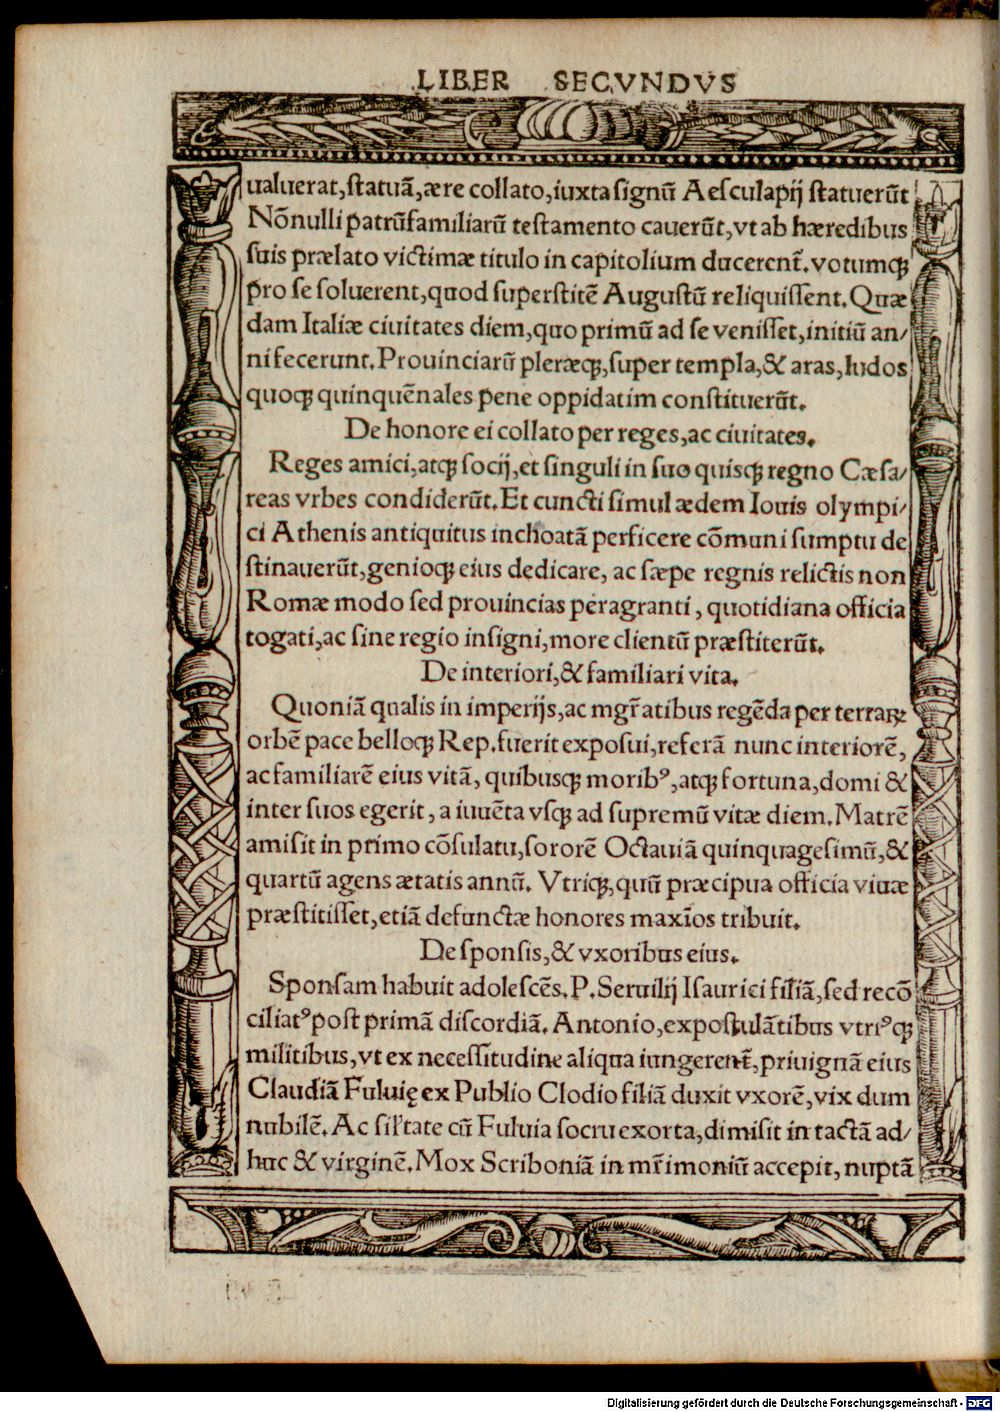 LIBER SECVNDVS
ualuerat,ſtatuā,ære collato,iuxta ſignū Aeſculapij ſtatuerūt
Nōnulli patrūfamiliarū teſtamento cauerūt,vt ab hæredibus
ſuis prælato victimæ titulo in capitolium ducerent̄.votumqꝫ
pro ſe ſoluerent,quod ſuperſtitē Auguſtū reliquiſſent.Quæ
dam Italiæ ciuitates diem,quo primū ad ſe veniſſet,initiū an/
ni fecerunt.Prouinciarū pleræqꝫ,ſuper templa,& aras,ludos
quoqꝫ quinquēnales pene oppidatim conſtituerūt.
De honore ei collato per reges,ac ciuitates.
Reges amici,atqꝫ ſocij,et ſinguli in ſuo quiſqꝫ regno Cæſa/
reas vrbes condiderūt.Et cuncti ſimul ædem Iouis olympi/
ci Athenis antiquitus inchoatā perficere cōmuni ſumptu de
ſtinauerūt,genioqꝫ eius dedicare, ac ſæpe regnis relictis non
Romæ modo ſed prouincias peragranti, quotidiana officia
togati,ac ſine regio inſigni,more clientū præſtiterūt.
De interiori,& familiari vita.
Quoniā qualis in imperijs,ac mgr̄atibus regēda per terraꝝ
orbē pace belloqꝫ Rep.fuerit expoſui,referā nunc interiorē,
ac familiarē eius vitā, quibuſqꝫ moribꝰ,atqꝫ fortuna,domi &
inter ſuos egerit, a iuuēta vſqꝫ ad ſupremū vitæ diem.Matrē
amiſit in primo cōſulatu,ſororē Octauiā quinquageſimū,&
quartū agens ætatis annū. Vtriqꝫ,quū præcipua officia viuæ
præſtitiſſet,etiā defunctæ honores maxīos tribuit.
De ſponſis,& vxoribus eius.
Sponſam habuit adoleſcēs.P.Seruilij Iſaurici filiā,ſed recō
ciliatꝰ poſt primā diſcordiā. Antonio,expoſtulātibus vtriꝰqꝫ
militibus,vt ex neceſſitudine aliqua iungerent̄,priuignā eius
Claudiā Fuluię ex Publio Clodio filiā duxit vxorē,vix dum
nubilē.Ac ſil'tate cū Fuluia ſocru exorta,dimiſit in tactā ad/
huc & virginē.Mox Scriboniā in mr̄imoniū accepit, nuptā
Digitalisierung gefördert durch die Deutsche Forschungsgemeinschaft - DFG